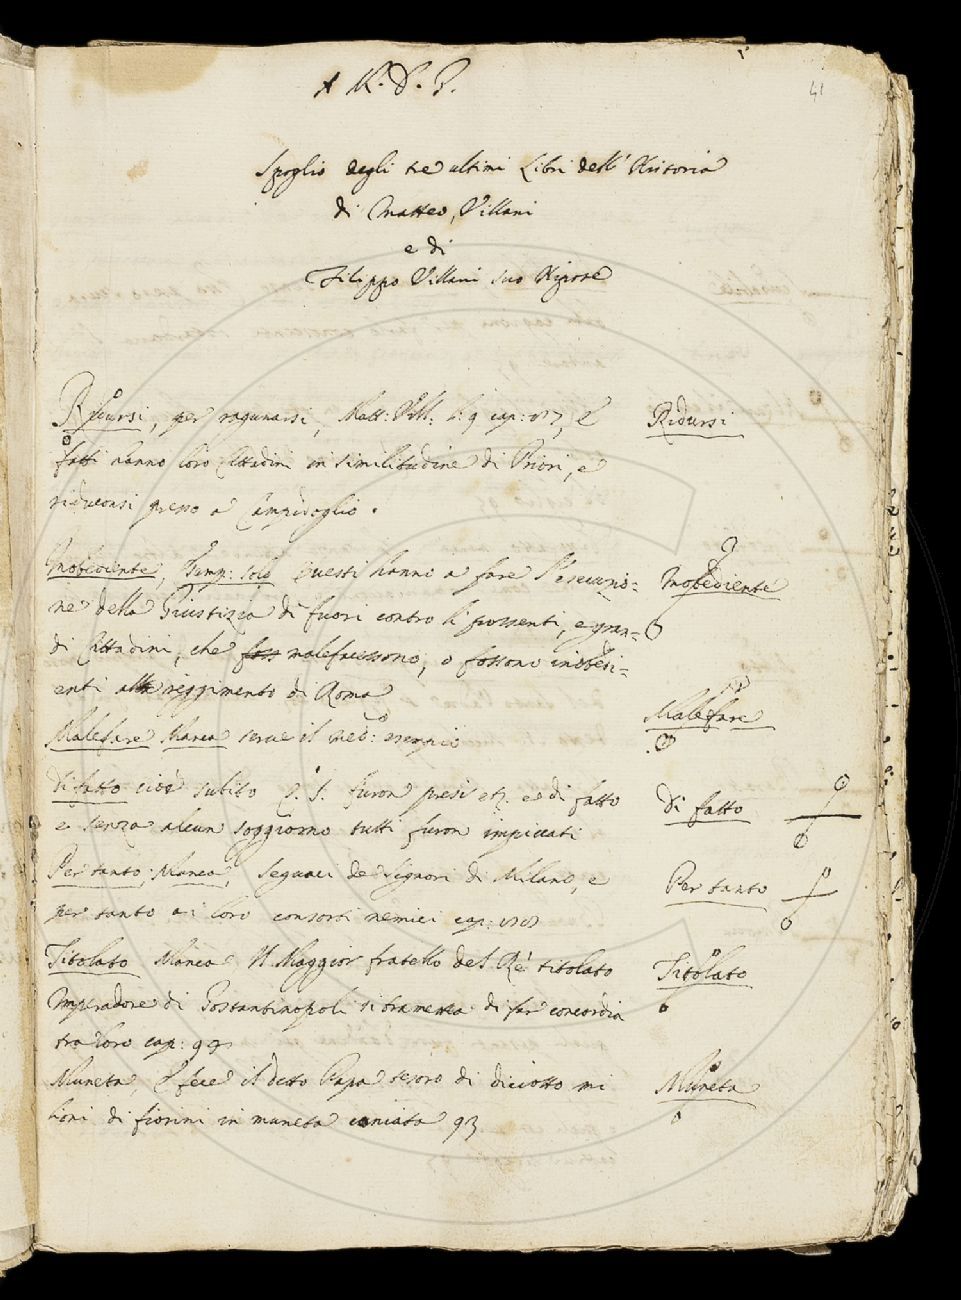 A M. D. G.
41
Spoglio degli tre ultimi Libri dell' Historia
di Matteo, Villani
e di
Filippo Villani suo Nipote
Riducersi, per ragunarsi, Matt: Vill: l: 9 cap: E
Ridursi
fatti hanno loro Cittadini in similitudine di Priori, e
riduconsi presso a Campidoglio.
Inobediente, solo questi hanno a fare l'esecuzio=
Inobediente
ne della Giustizia di fuori contro li possenti, e gran=
di Cittadini, che malefacessono, o fossono inobedi=
enti alle reggimento di Roma
Malefare
Malefare Manca serve il med: esempio
Di fatto cioè subito C. S. furon presi etz. e di fatto
Di fatto
e senza alcun soggiorno tutti furon impiccati
Per tanto; Manca, seguaci de Signori di Milano, e
Per tanto
per tanto a i loro consorti nemici cap:
Titolato Manca Il Maggior fratello del Rè titolato
Titolato
Imperadore di Gostantinopoli si tramettea di far concordia
tra loro cap: 9
Muneta, E fece il detto Papa tesoro di diciotto mi
Muneta
lioni di fiorini in muneta coniata 93